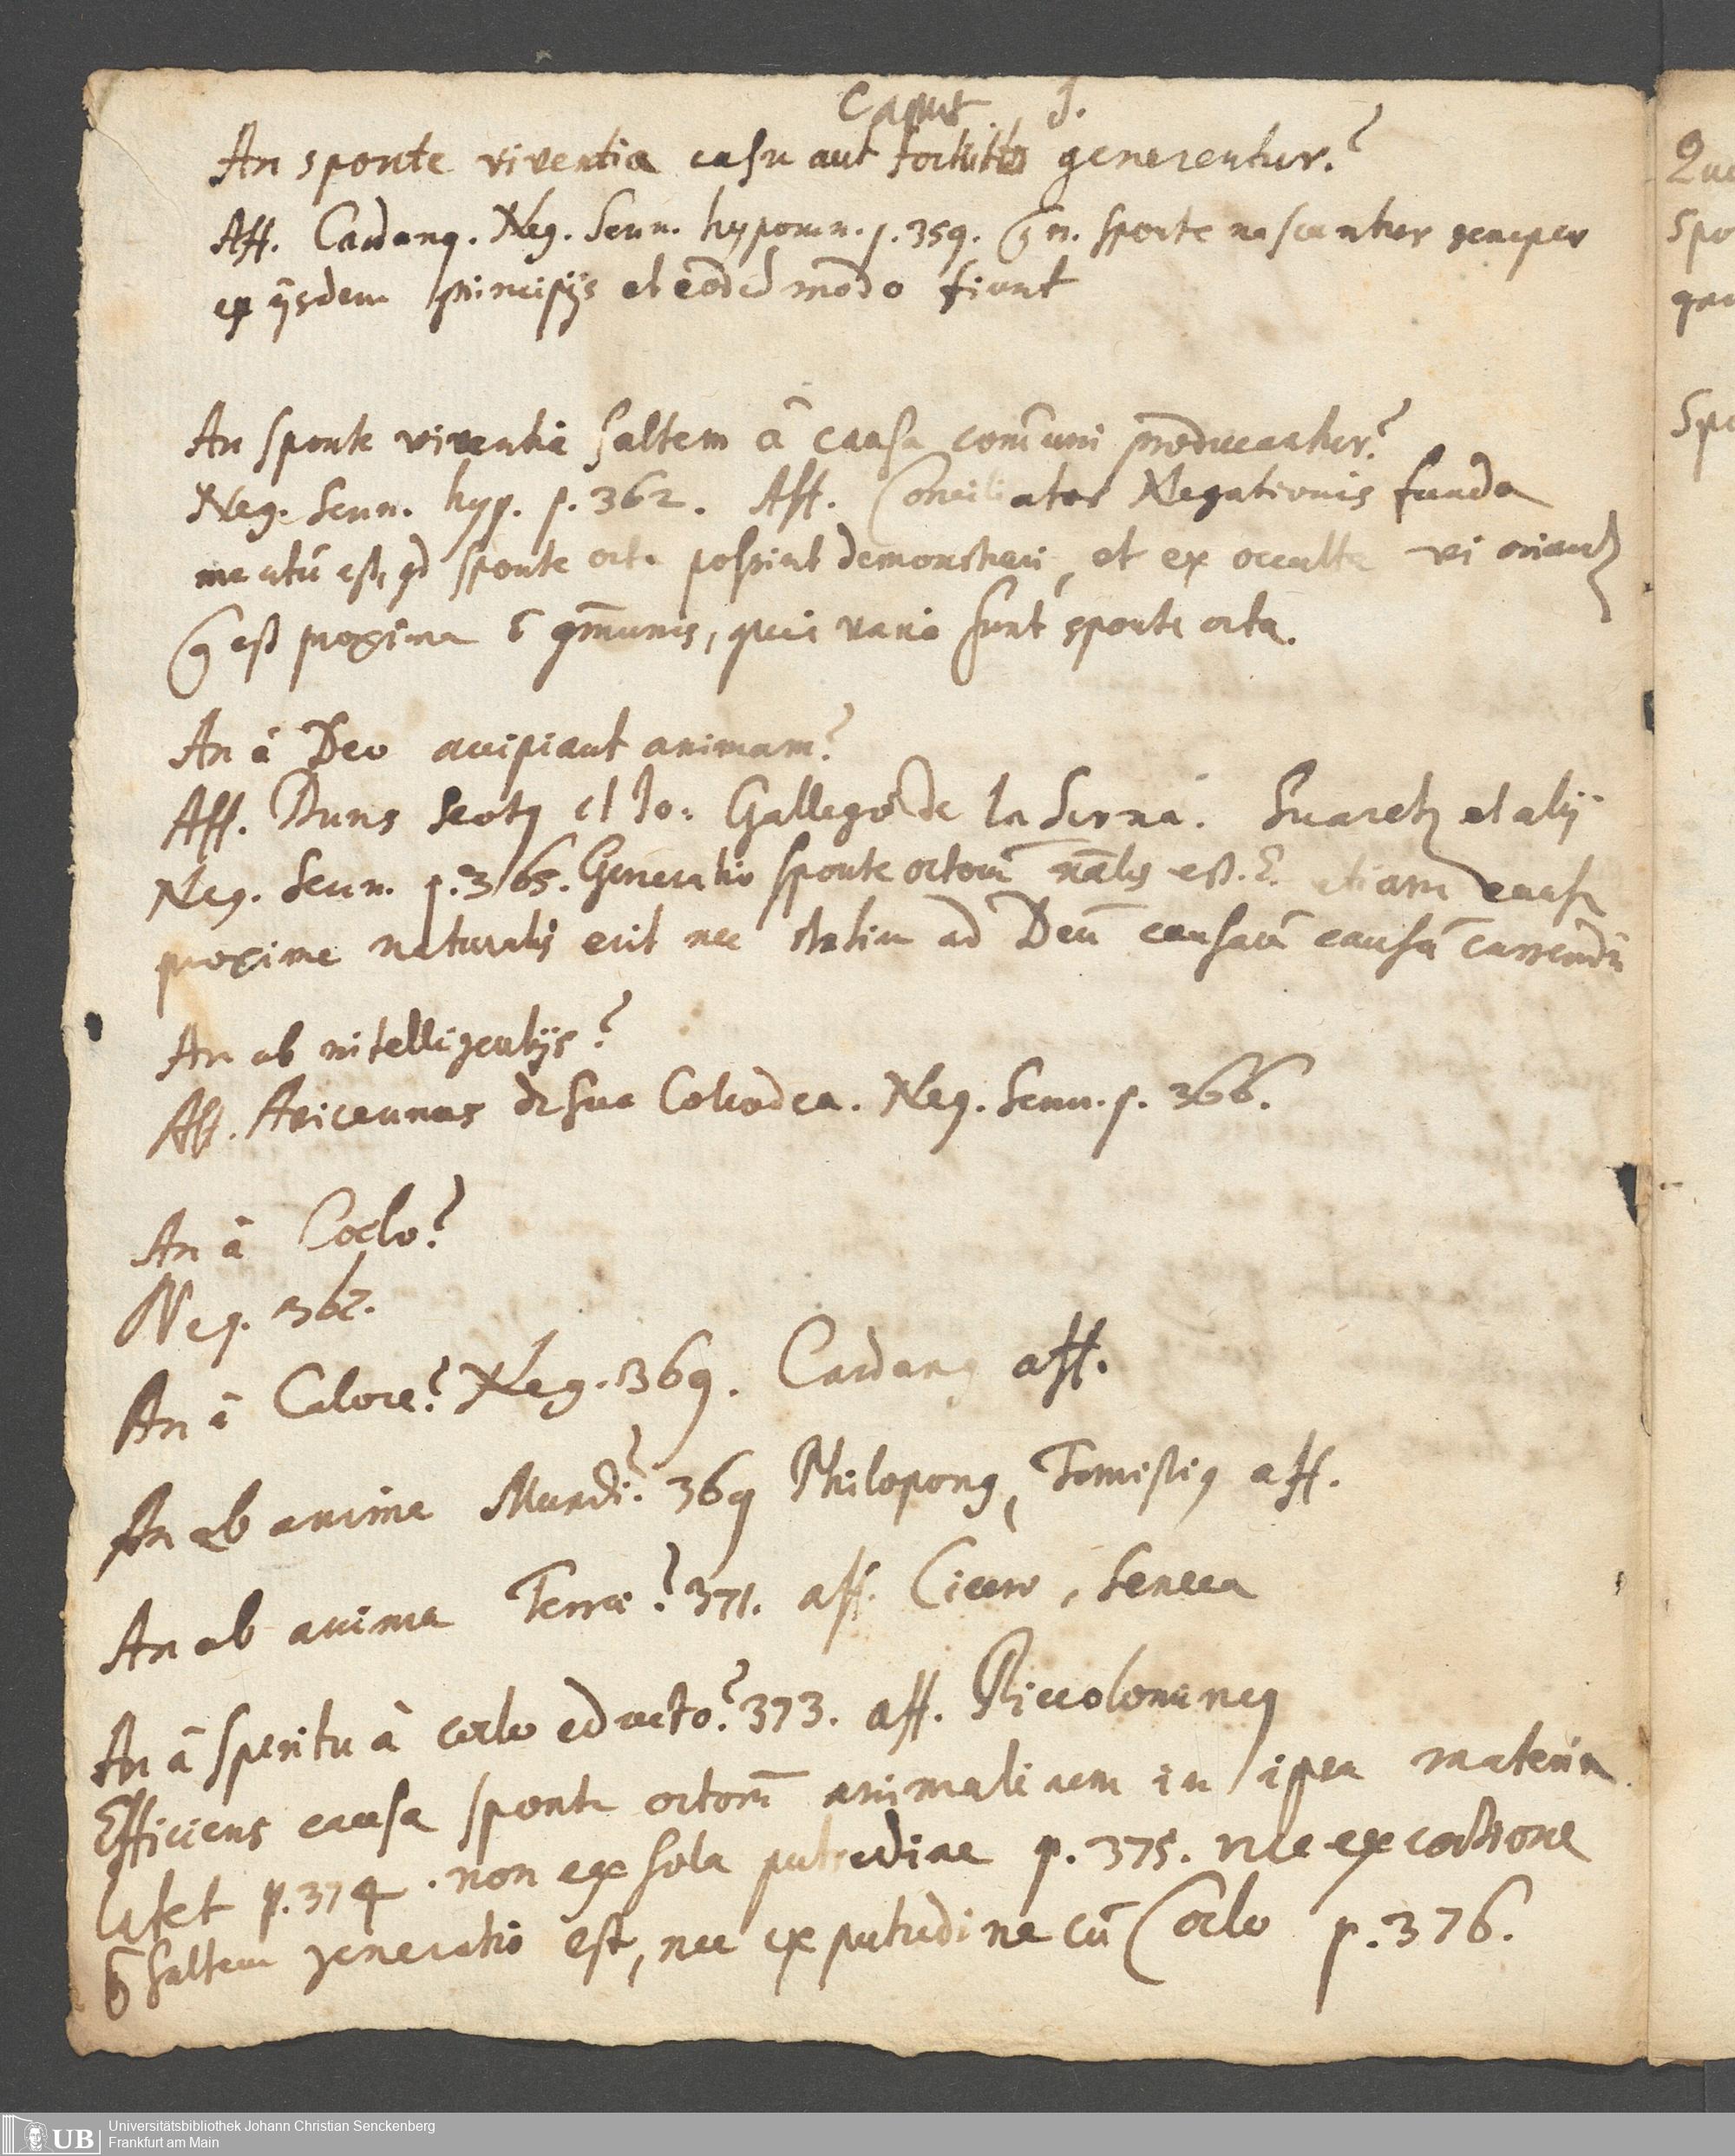 Caput 3.
An sponte viventia casu aut fortuito generentur?
Aff. Cardanꝰ. Neg. Senn. hypomn. p. 359. Qm̄ sponte nascuntur semper
ex ijsdem principijs et eodē modo fiunt
An sponte viventia saltem â causa com̄uni producantur?
Neg. Senn. hyp. p. 362. Aff. Conciliator Negationis funda
mentū est, qd sponte orta possint demonstrari, et ex occulta vi oriantʒ
est proxima ō qm̄unis, quia varia sunt sponte orta.
An â Deo accipiant animam?
Aff. Duns Scotꝰ et Jo: Gallego de la Serna. Suaretz et alij
Neg. Senn. p. 365. Generatio sponte ortorū nālis est. E. etiam causa
proxima naturalis erit nec statim ad Deū causarū causā currendū
An ab intelligentijs?
Aff. Avicennas de sua Colcodea. Neg. Senn. p. 366.
An â Coelo?
Neg. 367.
An â Calore? Neg. 369. Cardanꝰ aff.
An ab anima Mundi? 369 Philoponꝰ, Temistiꝰ aff.
An ab anima Terrae? 371. aff. Cicero, Seneca
An â spiritu â coelo educto? 373. aff. Piccolomineꝰ
Efficiens causa sponte ortorū animalium in ipsa materia
latet p. 374. non ex sola putredine p. 375. nec ex coctione
saltem generatio est, nec ex putredine cū Coelo p. 376.
Spo
Universitätsbibliothek Johann Christian Senckenberg
Frankfurt am Main
UB